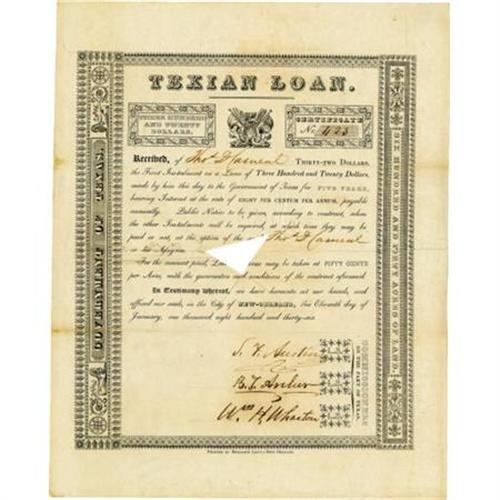 TEXIAN LOAN.
THREE HUNDRED
AND TWENTY
DOLLARS.
CERTIFICATE
No. 423
Received, of Thos. D Carneal THIRTY-TWO DOLLARS,
the First Instalment on a Loan of Three Hundred and Twenty Dollars,
made by him this day to the Government of Texas for FIVE YEARS,
bearing Interest at the rate of EIGHT PER CENTUM PER ANNUM, payable
annually. Public Notice to be given, according to contract, when
the other Instalments will be required, at which time they may be
paid or not, at the option of the Thos. D Carneal
or his Assignee.
For the amount paid, L may be taken at FIFTY CENTS
per Acre, with the guarantee and conditions of the contract aforesaid.
In Testimony whereof, we have hereunto set our hands, and
affixed our seals, in the City of NEW-ORLEANS, this Eleventh day of
January, one thousand eight hundred and thirty-six.
S. F. Austin
B. T. Archer
Wm H. Wharton
COMMISSIONERS
ON THE PART OF TEXAS.
GOVERNMENT OF TEXAS.
SIX HUNDRED AND FORTY ACRES OF LAND.
PRINTED BY BENJAMIN LEVY, NEW-ORLEANS